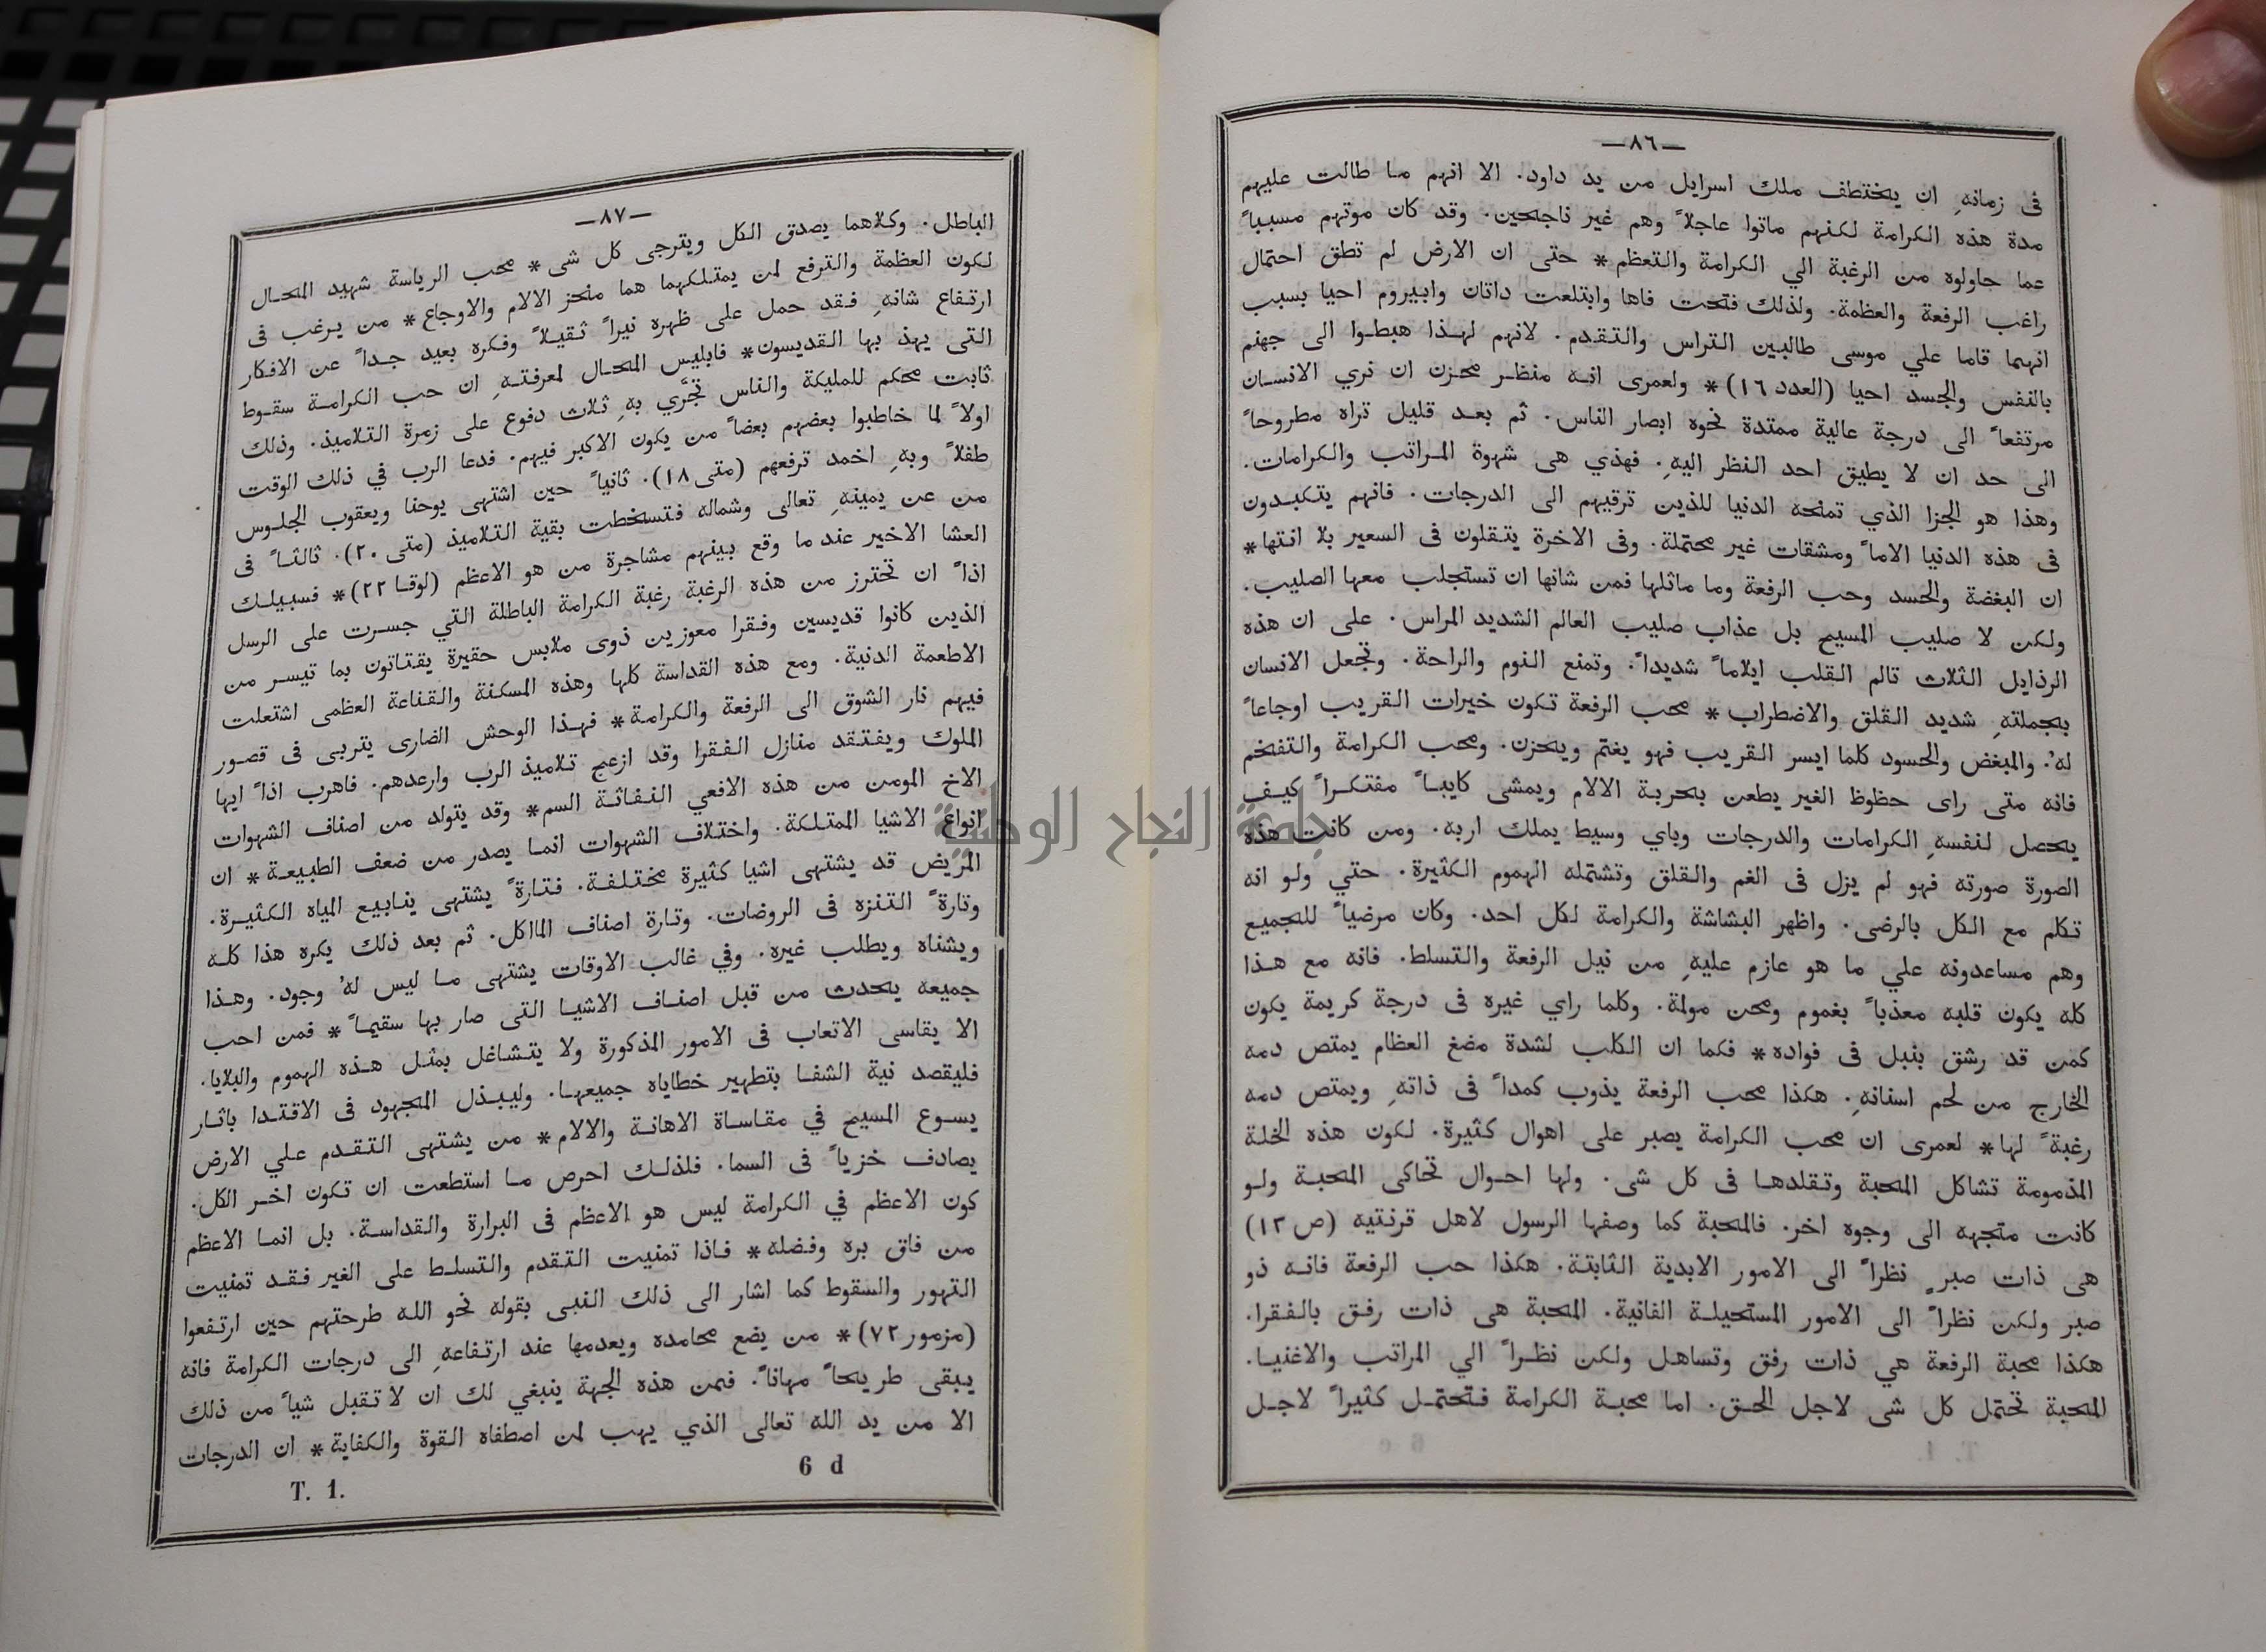 —٨٦—
فى زمانهِ ان يختطف ملك اسرايل من يد داود. الا انهم ما طالت عليهم
مدة هذه الكرامة لكنهم ماتوا عاجلاً وهم غير ناجحين. وقد كان موتهم مسبباً
عما حاولوه من الرغبة الي الكرامة والتعظم* حتى ان الارض لم تطق احتمال
راغب الرفعة والعظمة. ولذلك فتحت فاها وابتلعت داتان وابيروم احيا بسبب
انهما قاما علي موسى طالبين التراس والتقدم. لانهم لهذا هبطوا الى جهنم
بالنفس والجسد احيا (العدد ١٦)* ولعمرى انه منظر محزن ان نري الانسان
مرتفعاً الى درجة عالية ممتدة نحوه ابصار الناس. ثم بعد قليل تراه مطروحاً
الى حد ان لا يطيق احد النظر اليهِ. فهذي هى شهوة المراتب والكرامات.
وهذا هو الجزا الذي تمنحه الدنيا للذين ترقيهم الى الدرجات. فانهم يتكبدون
فى هذه الدنيا الاماً ومشقات غير محتملة. وفى الاخرة يتقلون فى السعير بلا انتها*
ان البغضة والحسد وحب الرفعة وما ماثلها فمن شانها ان تستجلب معها الصليب.
ولكن لا صليب المسيح بل عذاب صليب العالم الشديد المراس. على ان هذه
الرذايل الثلاث تالم القلب ايلاماً شديداً. وتمنع النوم والراحة. وتجعل الانسان
بجملتهِ شديد القلق والاضطراب* محب الرفعة تكون خيرات القريب اوجاعاً
لهُ. والمبغض والحسود كلما ايسر القريب فهو يغتم ويحزن. ومحب الكرامة والتفخم
فانه متى راى حظوظ الغير يطعن بحربة الالام ويمشى كايباً مفتكراً كيف
يحصل لنفسهِ الكرامات والدرجات وباي وسيط يملك اربه. ومن كانت هذه
الصورة صورته فهو لم يزل فى الغم والقلق وتشتمله الهموم الكثيرة. حتي ولو انه
تكلم مع الكل بالرضى. واظهر البشاشة والكرامة لكل احد. وكان مرضياً للجميع
وهم مساعدونه علي ما هو عازم عليهِ من نيل الرفعة والتسلط. فانه مع هذا
كله يكون قلبه معذباً بغموم ومحن مولمة. وكلما راي غيره فى درجة كريمة يكون
كمن قد رشق بنبل فى فواده* فكما ان الكلب لشدة مضغ العظام يمتص دمه
الخارج من لحم اسنانهِ. هكذا محب الرفعة يذوب كمداً فى ذاتهِ ويمتص دمه
رغبةً لها* لعمرى ان محب الكرامة يصبر على اهوال كثيرة. لكون هذه الخلة
المذمومة تشاكل المحبة وتقلدها فى كل شى. ولها احوال تحاكى المحبة ولو
كانت متجهه الى وجوه اخر. فالمحبة كما وصفها الرسول لاهل قرنتيه (ص ١٣)
هى ذات صبرٍ نظراً الى الامور الابدية الثابتة. هكذا حب الرفعة فانه ذو
صبر ولكن نظراً الى الامور المستحيلة الفانية. المحبة هى ذات رفق بالفقرا.
هكذا محبة الرفعة هي ذات رفق وتساهل ولكن نظراً الي المراتب والاغنيا.
المحبة تحتمل كل شى لاجل الحق. اما محبة الكرامة فتحتمل كثيراً لاجل
—٨٧—
الباطل. وكلاهما يصدق الكل ويترجى كل شى* محب الرياسة شهيد المحال
لكون العظمة والترفع لمن يمتلكهما هما منخز الالام والاوجاع* من يرغب فى
ارتفاع شانهِ فقد حمل على ظهره نيراً ثقيلاً وفكره بعيد جداً عن الافكار
التى يهذ بها القديسون* فابليس المحال لمعرفتهِ ان حب الكرامة سقوط
ثابت محكم للمليكة والناس تجرَّي بهِ ثلاث دفوع على زمرة التلاميذ. وذلك
اولاً لما خاطبوا بعضهم بعضاً من يكون الاكبر فيهم. فدعا الرب في ذلك الوقت
طفلاً وبهِ اخمد ترفعهم (متى ١٨). ثانياً حين اشتهى يوحنا ويعقوب الجلوس
من عن يمينهِ تعالى وشماله فتسخطت بقية التلاميذ (متى ٢٠). ثالثاً فى
العشا الاخير عند ما وقع بينهم مشاجرة من هو الاعظم (لوقا ٢٢)* فسبيلك
اذاً ان تحترز من هذه الرغبة رغبة الكرامة الباطلة التي جسرت على الرسل
الذين كانوا قديسين وفقرا معوزين ذوى ملابس حقيرة يقتاتون بما تيسر من
الاطعمة الدنية. ومع هذه القداسة كلها وهذه المسكنة والقناعة العظمى اشتعلت
فيهم نار الشوق الى الرفعة والكرامة* فهذا الوحش الضارى يتربى فى قصور
الملوك ويفتقد منازل الفقرا وقد ازعج تلاميذ الرب وارعدهم. فاهرب اذاً ايها
الاخ المومن من هذه الافعي النفاثة السم* وقد يتولد من اصناف الشهوات
انواع الاشيا الممتلكة. واختلاف الشهوات انما يصدر من ضعف الطبيعة* ان
المريض قد يشتهى اشيا كثيرة مختلفة. فتارةً يشتهى ينابيع المياه الكثيرة.
وتارةً التنزه فى الروضات. وتارة اصناف المااكل. ثم بعد ذلك يكره هذا كله
ويشناه ويطلب غيره. وفي غالب الاوقات يشتهى ما ليس لهُ وجود. وهذا
جميعه يحدث من قبل اصناف الاشيا التى صار بها سقيماً* فمن احب
الا يقاسى الاتعاب فى الامور المذكورة ولا يتشاغل بمثل هذه الهموم والبلايا.
فليقصد نية الشفا بتطهير خطاياه جميعها. وليبذل المجهود فى الاقتدا باثار
يسوع المسيح في مقاساة الاهانة والالام* من يشتهى التقدم علي الارض
يصادف خزياً فى السما. فلذلك احرص ما استطعت ان تكون اخر الكل.
كون الاعظم في الكرامة ليس هو الاعظم فى البرارة والقداسة. بل انما الاعظم
من فاق بره وفضله* فاذا تمنيت التقدم والتسلط على الغير فقد تمنيت
التهور والسقوط كما اشار الى ذلك النبى بقوله نحو الله طرحتهم حين ارتفعوا
(مزمور ٧٢)* من يضع محامده ويعدمها عند ارتفاعهِ الى درجات الكرامة فانه
يبقى طريحاً مهاناً. فمن هذه الجهة ينبغي لك ان لا تقبل شياً من ذلك
الا من يد الله تعالى الذي يهب لمن اصطفاه القوة والكفاية* ان الدرجات
T. 1. 6 d
جامعة النجاح الوطنية